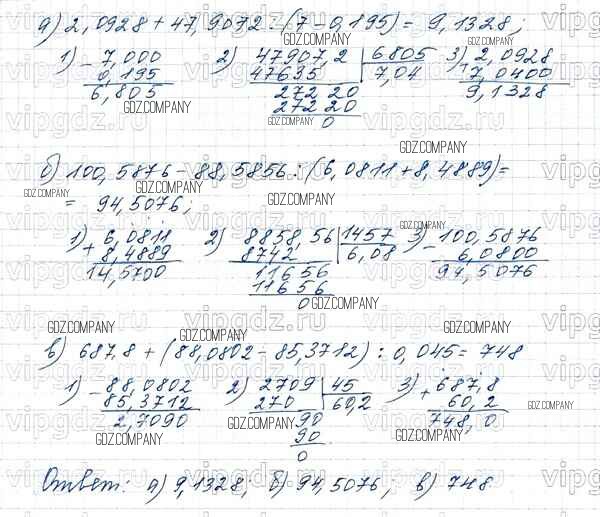 а) 2,0928 + 47,9072 : (7 – 0,195) = 9,1328;
1) – 7,000 2) 47907,2 | 6805 3) 2,0928
0,195 47635 7,04 7,0400
6,805 272 20 9,1328
272 20
0
б) 100,5876 – 88,5856 : (6,0811 + 8,4889) =
= 94,5076;
1) + 6,0811 2) 8858,56 | 1457 3) – 100,5876
8,4889 8742 6,08 6,0800
14,5700 116 56 94,5076
116 56
0
в) 687,8 + (88,0802 – 85,3712) : 0,045 = 748
1) – 88,0802 2) 2709 | 45 3) + 687,8
85,3712 270 60,2 60,2
2,7090 90 748,0
90
0
Ответ: а) 9,1328; б) 94,5076; в) 748
GDZ.COMPANY
vipgdz.ru